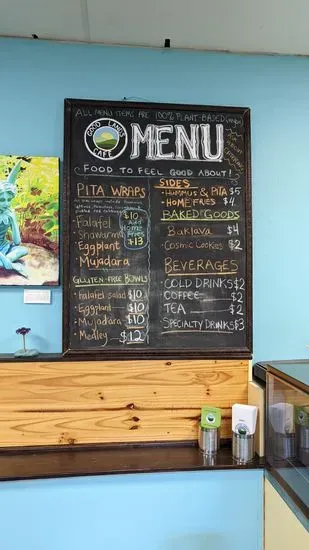 ALL MENU ITEMS ARE 100% PLANT-BASED (vegan)
GOOD LANDS
CAFE
MENU
FOOD TO FEEL GOOD ABOUT!
PITA WRAPS
Falafel
Shawarma
Eggplant
Mujadara
$10
Add
Home
Fries
$13
GLUTEN-FREE BOWLS
• Falafel salad $10
• Eggplant $10
• Mujadara $10
• Medley $12
SIDES
• HUMMUS & PITA $5
• HOME FRIES $4
BAKED GOODS
Baklava $4
Cosmic Cookies $2
BEVERAGES
COLD DRINKS $2
COFFEE $2
TEA $2
SPECIALTY DRINKS $3